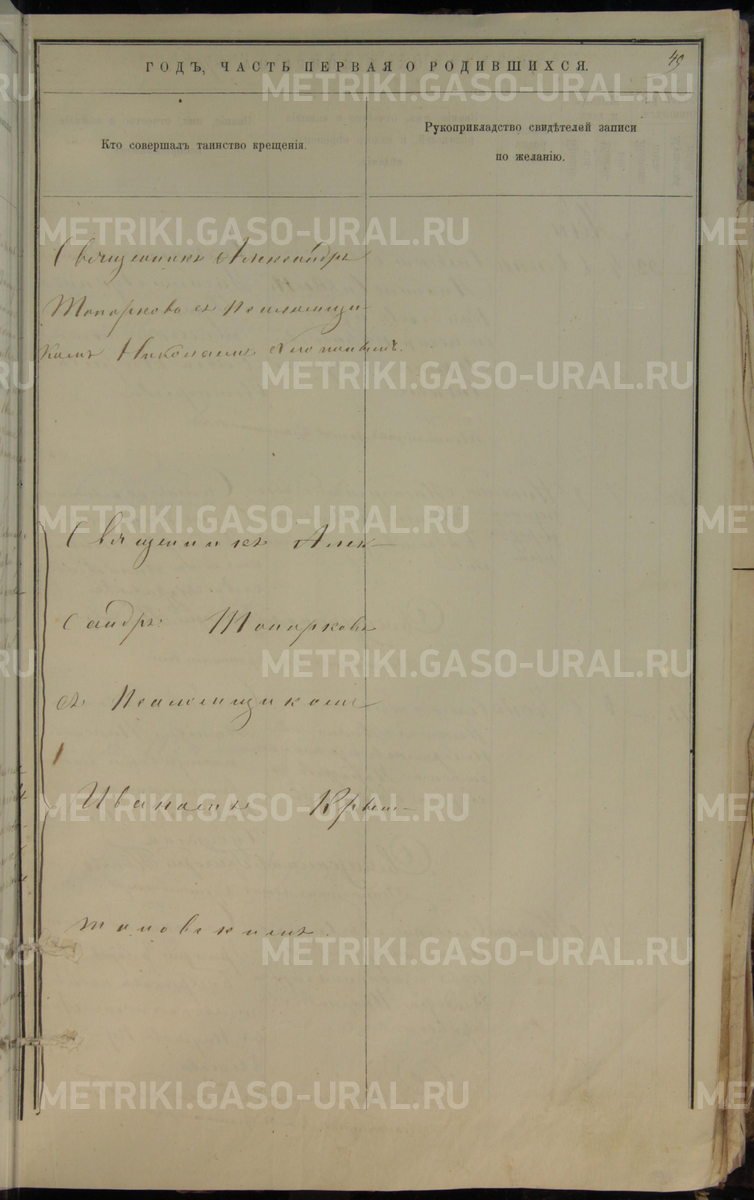 49
ГОДЪ, ЧАСТЬ ПЕРВАЯ О РОДИВШИХСЯ.
Кто совершалъ таинство крещенія.
Рукоприкладство свидѣтелей записи
по желанію.
Священникъ Александръ
Топорковъ съ Псаломщи-
комъ Николаемъ
Священникъ Алек-
сандръ Топорковъ
съ Псаломщикомъ
Иваномъ Крыж-
тановскимъ
METRIKI.GASO-URAL.RU